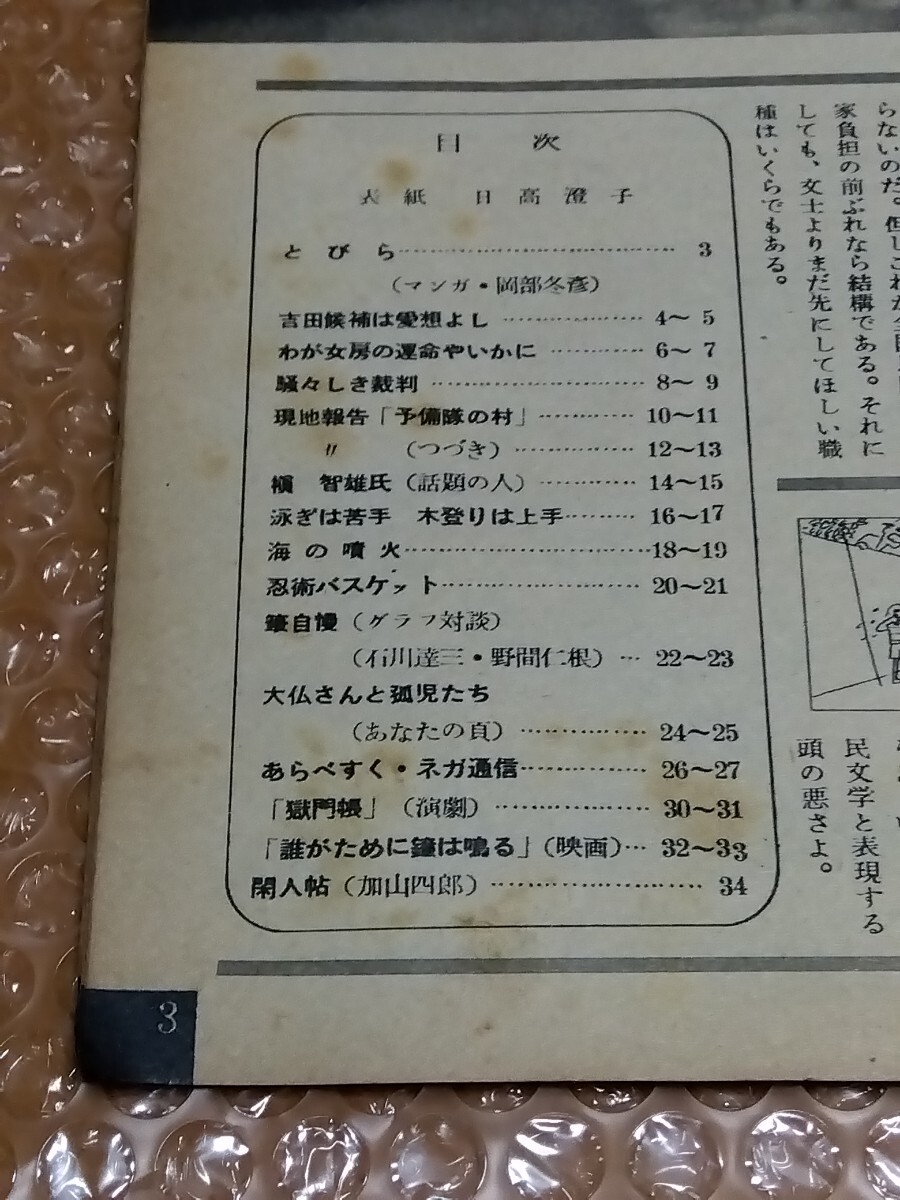 目次
表紙 日高澄子
とびら…………………………… 3
(マンガ・岡部冬彦)
吉田候補は愛想よし …………… 4〜 5
わが女房の運命やいかに ………… 6〜 7
騒々しき裁判 …………………… 8〜 9
現地報告「予備隊の村」………… 10〜11
〃 (つづき)…………… 12〜13
槇 智雄氏(話題の人)………… 14〜15
泳ぎは苦手 木登りは上手……… 16〜17
海の噴火…………………………18〜19
忍術バスケット…………………… 20〜21
自慢(グラフ対談)
(石川達三・野間仁根)… 22〜23
大仏さんと孤児たち
(あなたの頁)…………… 24〜25
あらべすく・ネガ通信…………… 26〜27
「獄門帳」(演劇)……………… 30〜31
「誰がために鐘は鳴る」(映画)… 32〜33
閑人帖(加山四郎)……………………… 34
らないのだ。但しこれが全国
家負担の前ぶれなら結構である。それに
しても、文士よりまだ先にしてほしい職
種はいくらでもある。
民文学と表現する
頭の悪さよ。
3